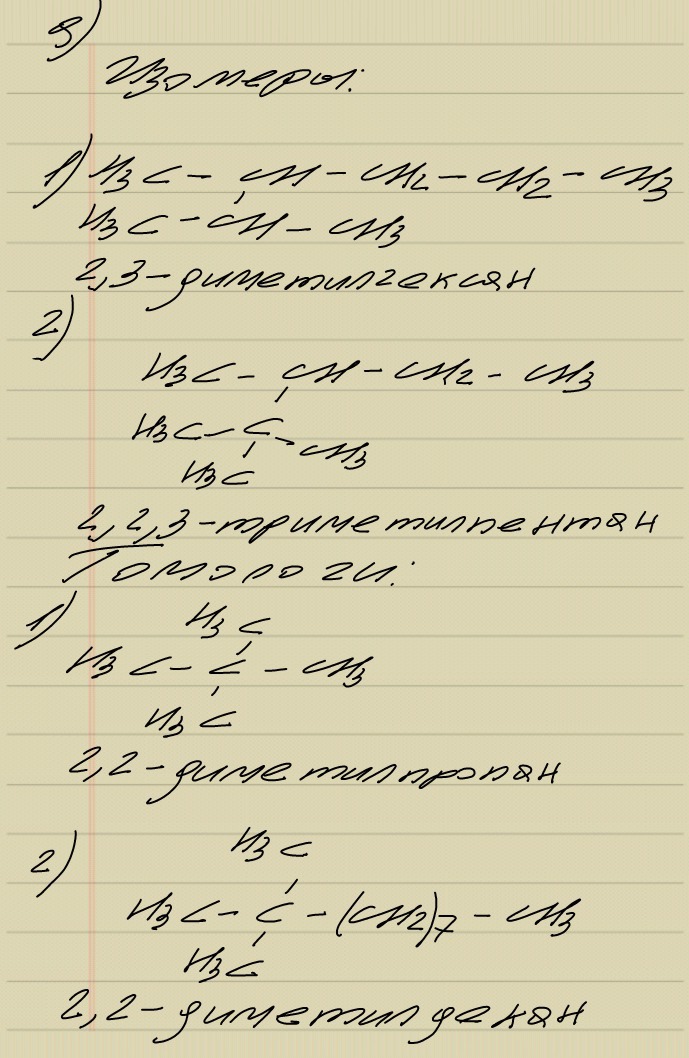 3)
Изомеры:
1) H3C - CH - CH2 - CH2 - CH3
H3C - CH - CH3
2,3-диметилгексан
2)
H3C - CH - CH2 - CH3
H3C - C - CH3
H3C
2,2,3-триметилпентан
Гомологи:
1)
H3C
H3C - C - CH3
H3C
2,2-диметилпропан
2)
H3C
H3C - C - (CH2)7 - CH3
H3C
2,2-диметилдекан